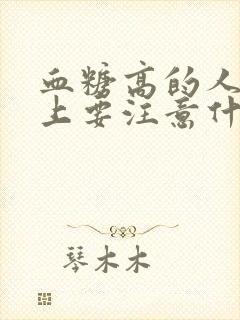 血糖高的人
上要注意什
琴木木